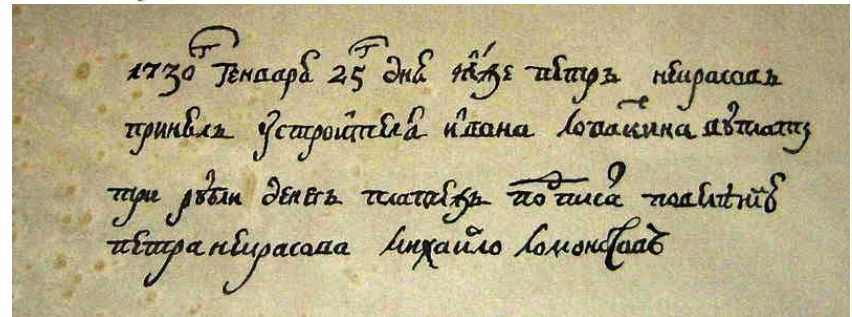 1730г Генваря 25г дня Петръ некрасовъ
принялъ у строителя ивана лопаткина вуплату
три рубли денегъ платежъ подписа повеленю
петра некрасова михайло ломоносовъ